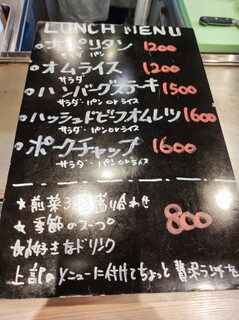 LUNCH MENU
ナポリタン 1200
サラダ パン
オムライス 1200
サラダ
ハンバーグステーキ 1500
サラダ・パン or ライス
ハッシュドビーフオムレツ 1600
サラダ・パン or ライス
ポークチャップ 1600
サラダ・パン or ライス
★前菜3種盛り合わせ
★季節のスープ 800
★お好きなドリンク
上記のメニューに付けてちょっと贅沢ランチを